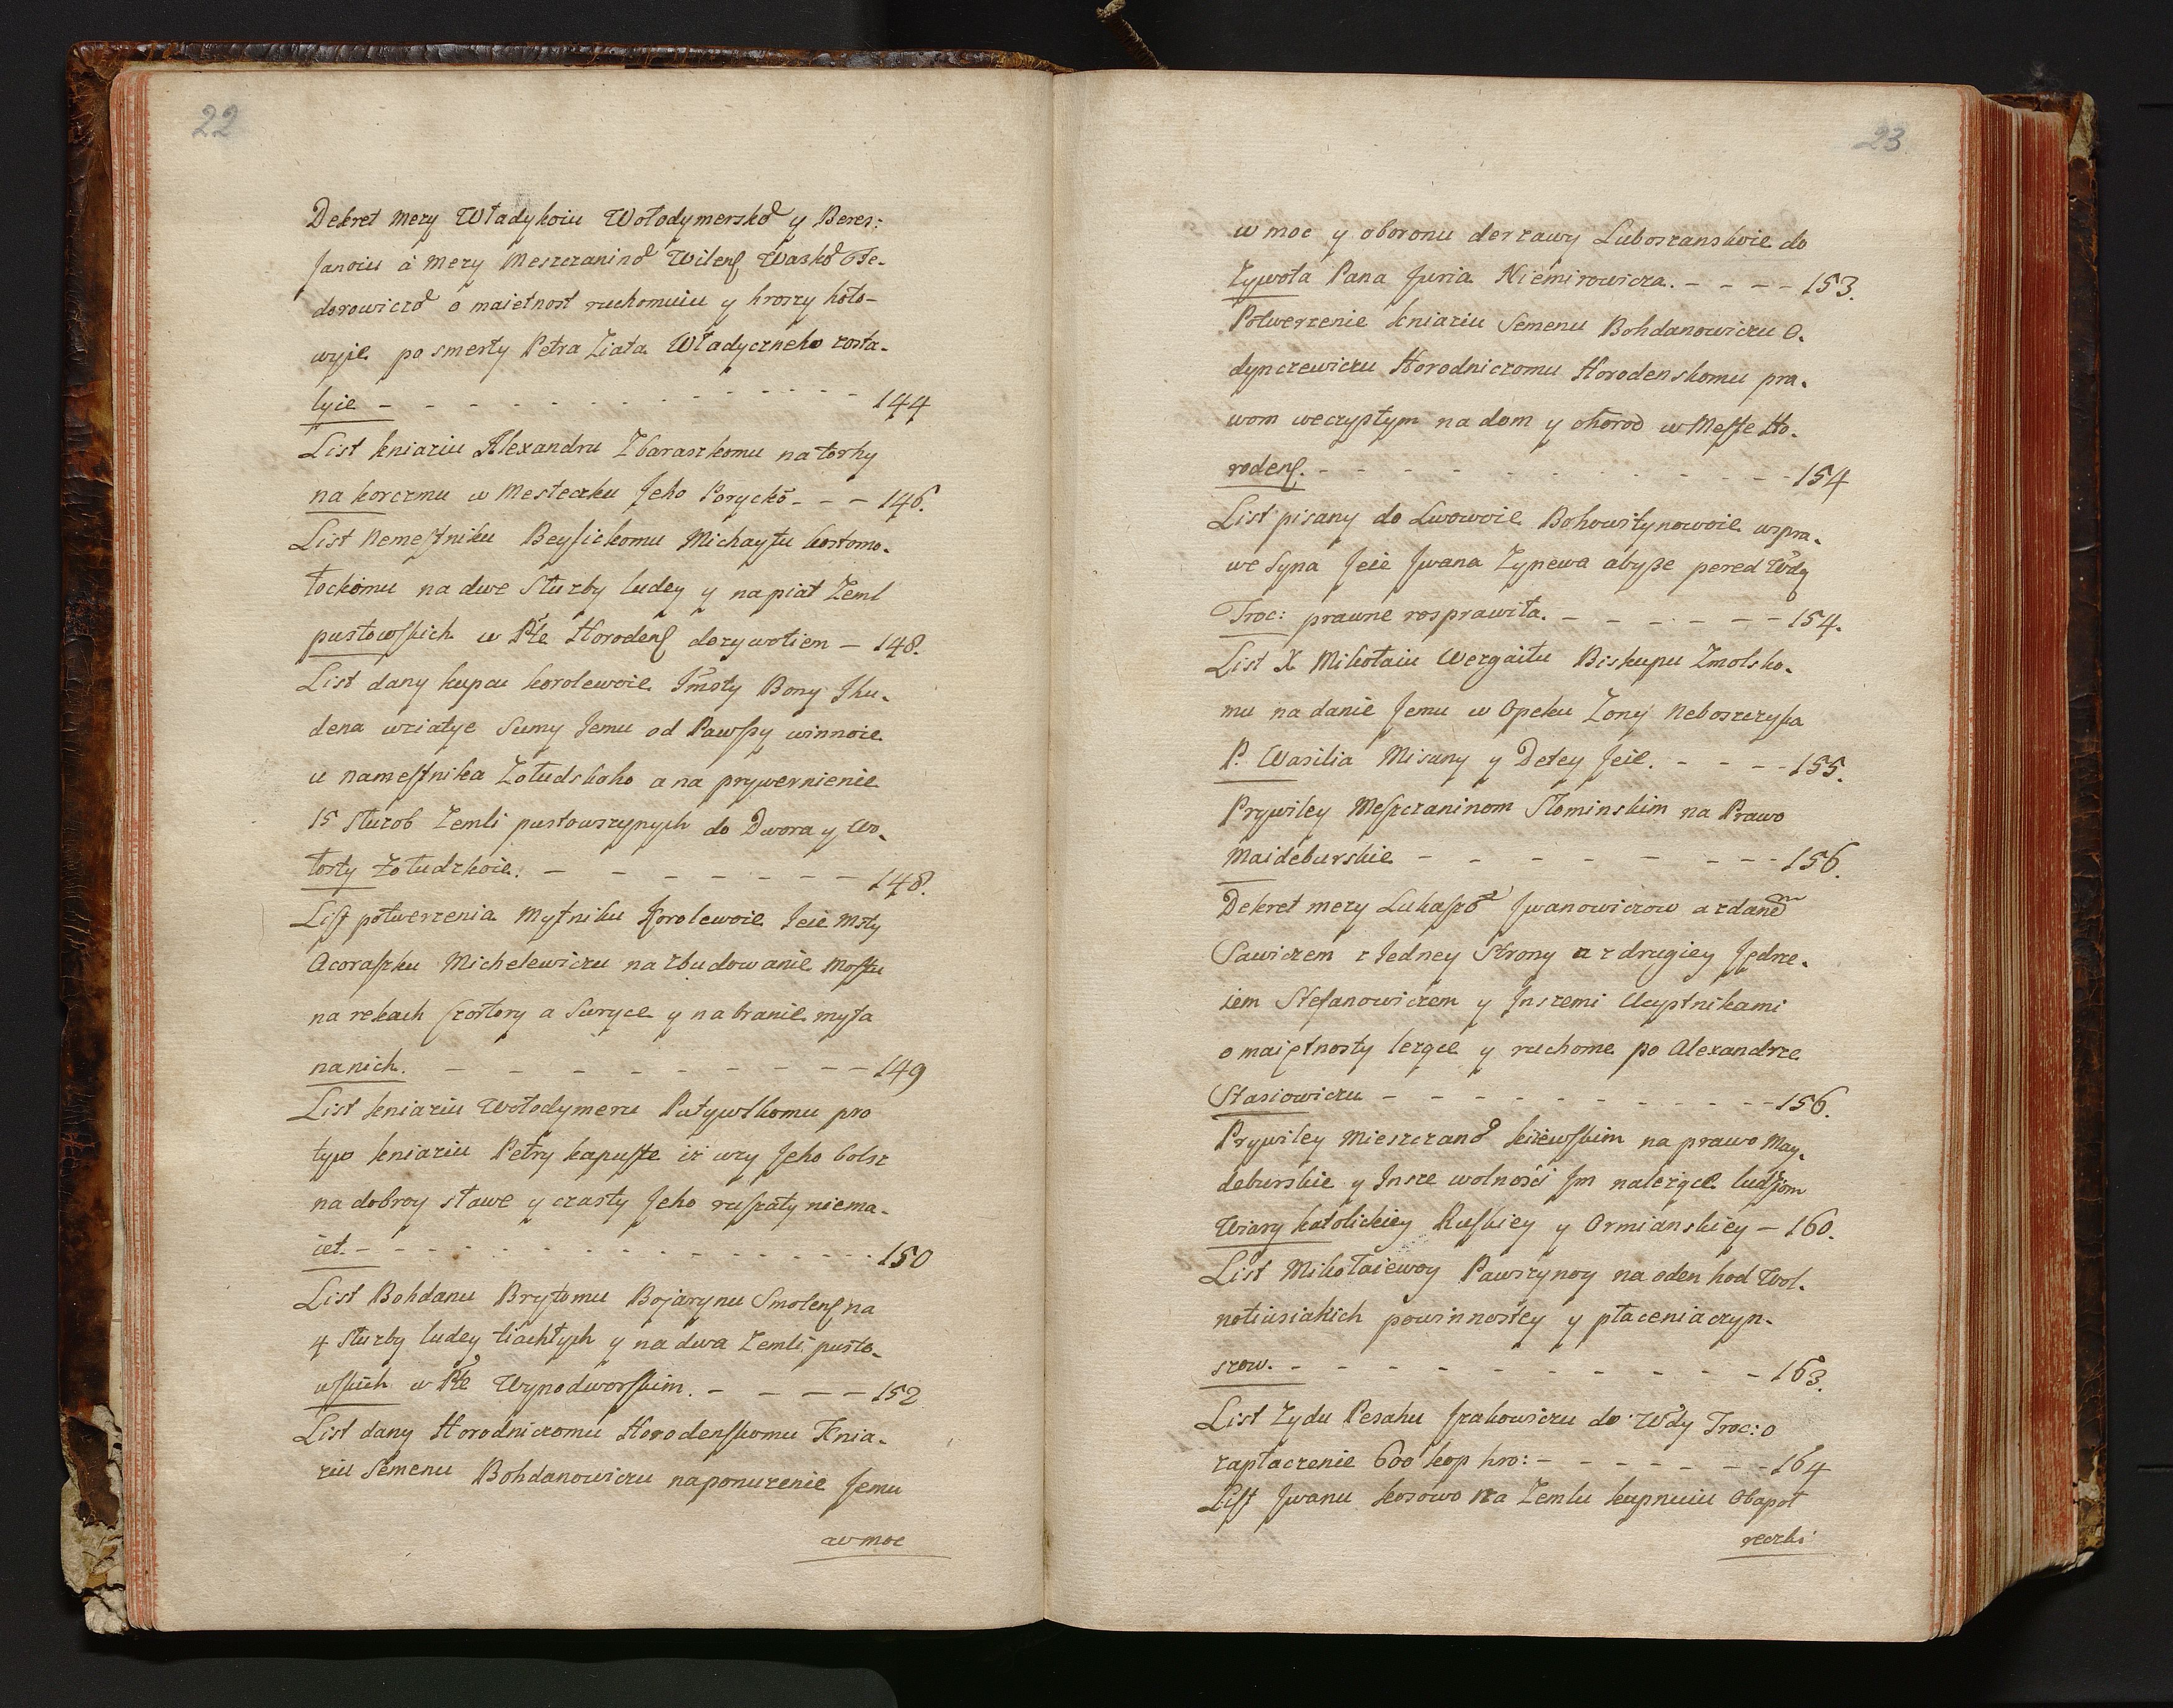 22
Dekret mezy Władykoiu Wołodymerskō y Beres:
Janoiu à mezy Meszczaninō Wilenſ Waskō Fe-
dorowiczō o maietnost ruchomuiu y hroszy hoto-
wyje po smerty Petra Ziata Władyczneho zosta-
łyie - - - - - - - - - - - 144
List kniaziu Alexandru Zbaraskomu na torhy
na korczmu w Mesteczku Jeho Porycko - - - 146.
List Nemeſtniku Beyſickomu Michayłu kostomo-
łockomu na dwe Słuzby ludey y na piat Zeml
pustowſkich w Płe Horodenſ dozywotiem - 148.
List dany kupcu korolewoie Jmsty Bony Jhu-
dena wziatye Sumy Jemu od Pawſzy winnoie
u nameſtnika Zołudskoho a na prywernienie
15 służob Zemli pustowszynych do Dwora y Wo-
łosty Zołudzkoie. - - - - - - - - 148.
Liſt potwerzenia Mytniku Korolewoie Jeie Msty
Acoraſzku Michelewiczu na zbudowanie Moſtu
na rekach ſzostory a Suryce y na branie myta
na nich. - - - - - - - - - - 149
List kniaziu Wołodymeru Putywſkomu pro
tyw kniaziu Petry kapuſte iż wży Jeho bolsz
na dobroy sławe y czasty Jeho ruſzaty niema-
iet. - - - - - - - - - - - - 150
List Bohdanu Brytomu Bojarynu Smolenſ na
4 Słuzby ludey tiachłych y na dwa Zemli pusto-
wſkich w Płe Wynodworſkim. - - - - 152
List dany Horodniczomu Horodenſkomu Knia-
ziu Semenu Bohdanowiczu na ponuzenie Jemu
w moc
23
w moc y oboronu derzawy Luboszanskoie do
Zywota Pana Juria Niemirowicza. - - - - 153.
Potwerzenie kniaziu Semenu Bohdanowiczu O-
dynczewiczu Horodniczomu Horodenskomu pra-
wom weczystym na dom y ohorod w Meſte Ho-
rodenſ. - - - - - - - - - - 154
List pisany do Lwowoie Bohowitynowoie wspra-
we Syna Jeie Jwana Zynewa abyſze pered Wdą
Troc: prawne rosprawiła. - - - - - - 154.
List X Mikołaiu Wezgaitu Biskupu Zmolsko-
mu na danie Jemu w Opeku Zony Neboszczyka
P. Wasilia Misuny y Detey Jeie. - - - - 155.
Prywiley Meſzczaninom Słominskim na Prawo
Maideburskie - - - - - - - - 156.
Dekret mezy Lukaſzō Jwanowiczow a zdane
Sawiczem z Jedney Strony a z drugiey Jędrze-
iem Stefanowiczem y Jnszemi Ucystnikami
o maiętnosty lezące y ruchome po Alexandrze
Stasiowiczu - - - - - - - - - - 156.
Prywiley Mieszczanō kiiewſkim na prawo May-
deburskie y Jnsze wolności Jm należące ludziom
Wiary katolickiey Ruſkiey y Ormianskiey - 160.
List Mikołaiewoy Pawszynoy na oden hod Wol-
notiusiakich powinnostey y płacenia czyn-
szow. - - - - - - - - - - 163.
List Zydu Pesahu Jzakowiczu do Wdy Troc: o
zapłaczenie 600 kop hro: - - - - - - - 164
Liſt Jwanu kosowo na Zemlu kupnuiu Obapoł
reczki